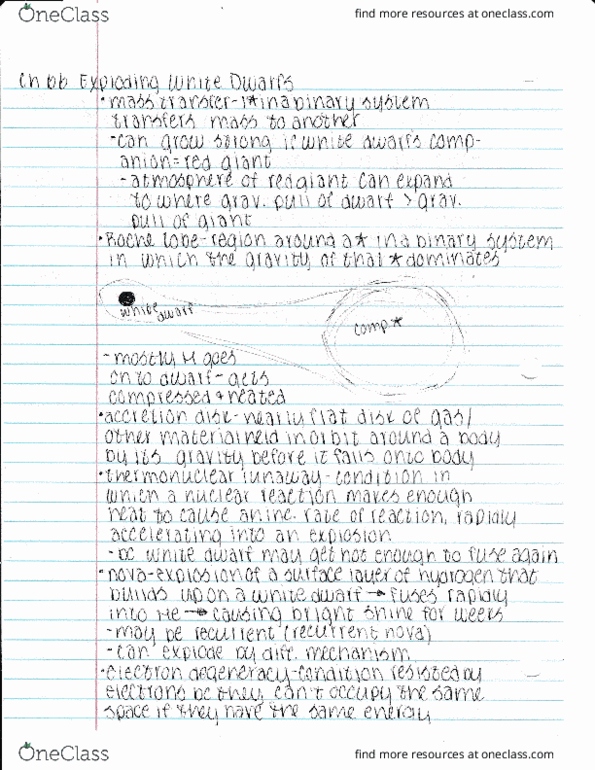 OneClass
find more resources at oneclass.com
Ch bb Exploding White Dwarfs
• mass transfer- 1★ in a binary system
transfers mass to another
-can grow strong if white dwarfs comp-
anion = red giant
-atmosphere of red giant can expand
to where grav. pull of dwarf > grav.
pull of giant
• Roche lobe- region around a ★ in a binary system
in which the gravity of that ★ dominates
white dwarf
comp ★
- mostly H goes
onto dwarf- gets
compressed + heated
• accretion disk- nearly flat disk of gas/
other material held in orbit around a body
by its gravity before it falls onto body
• thermonuclear runaway- condition in
which a nuclear reaction makes enough
heat to cause an inc. rate of reaction, rapidly
accelerating into an explosion
-bc white dwarf may get hot enough to fuse again
• nova- explosion of a surface layer of hydrogen that
builds up on a white dwarf → fuses rapidly
into He → causing bright shine for weeks
-may be recurrent (recurrent nova)
-can explode by diff. mechanism
• electron degeneracy- condition resisted by
electrons bc they can't occupy the same
space if they have the same energy
OneClass
find more resources at oneclass.com